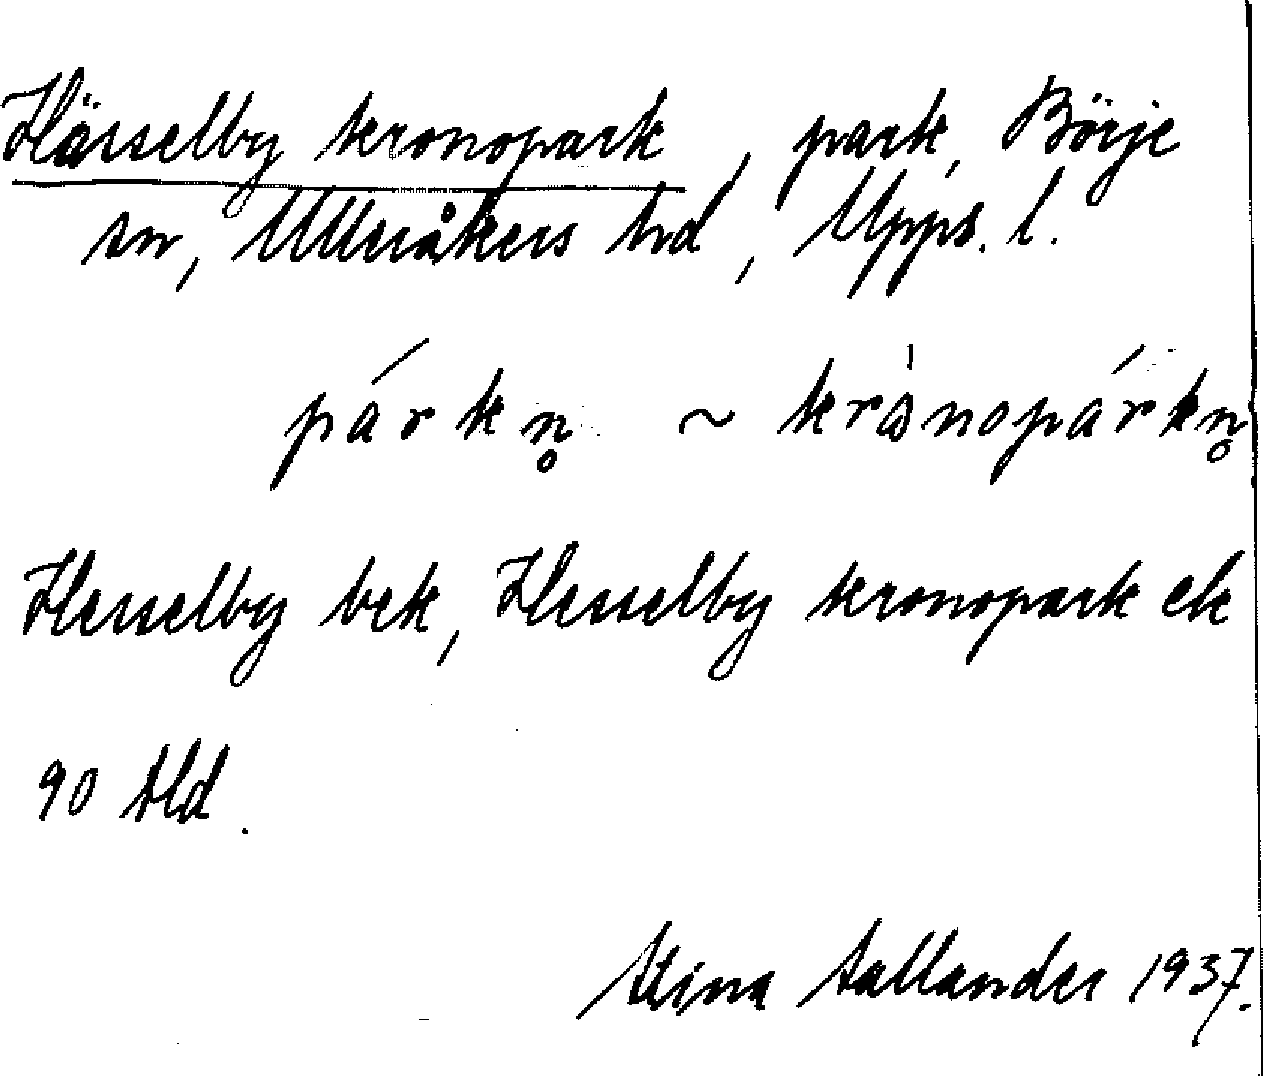 Hässelby kronopark, park, Börje
sn, Ulleråkers hd, Upps. l.
párkn̥ ~ krànopárkn̥
Hesselby bek, Hesselby kronopark ek
90 tld.
Stina Sallander 1937.